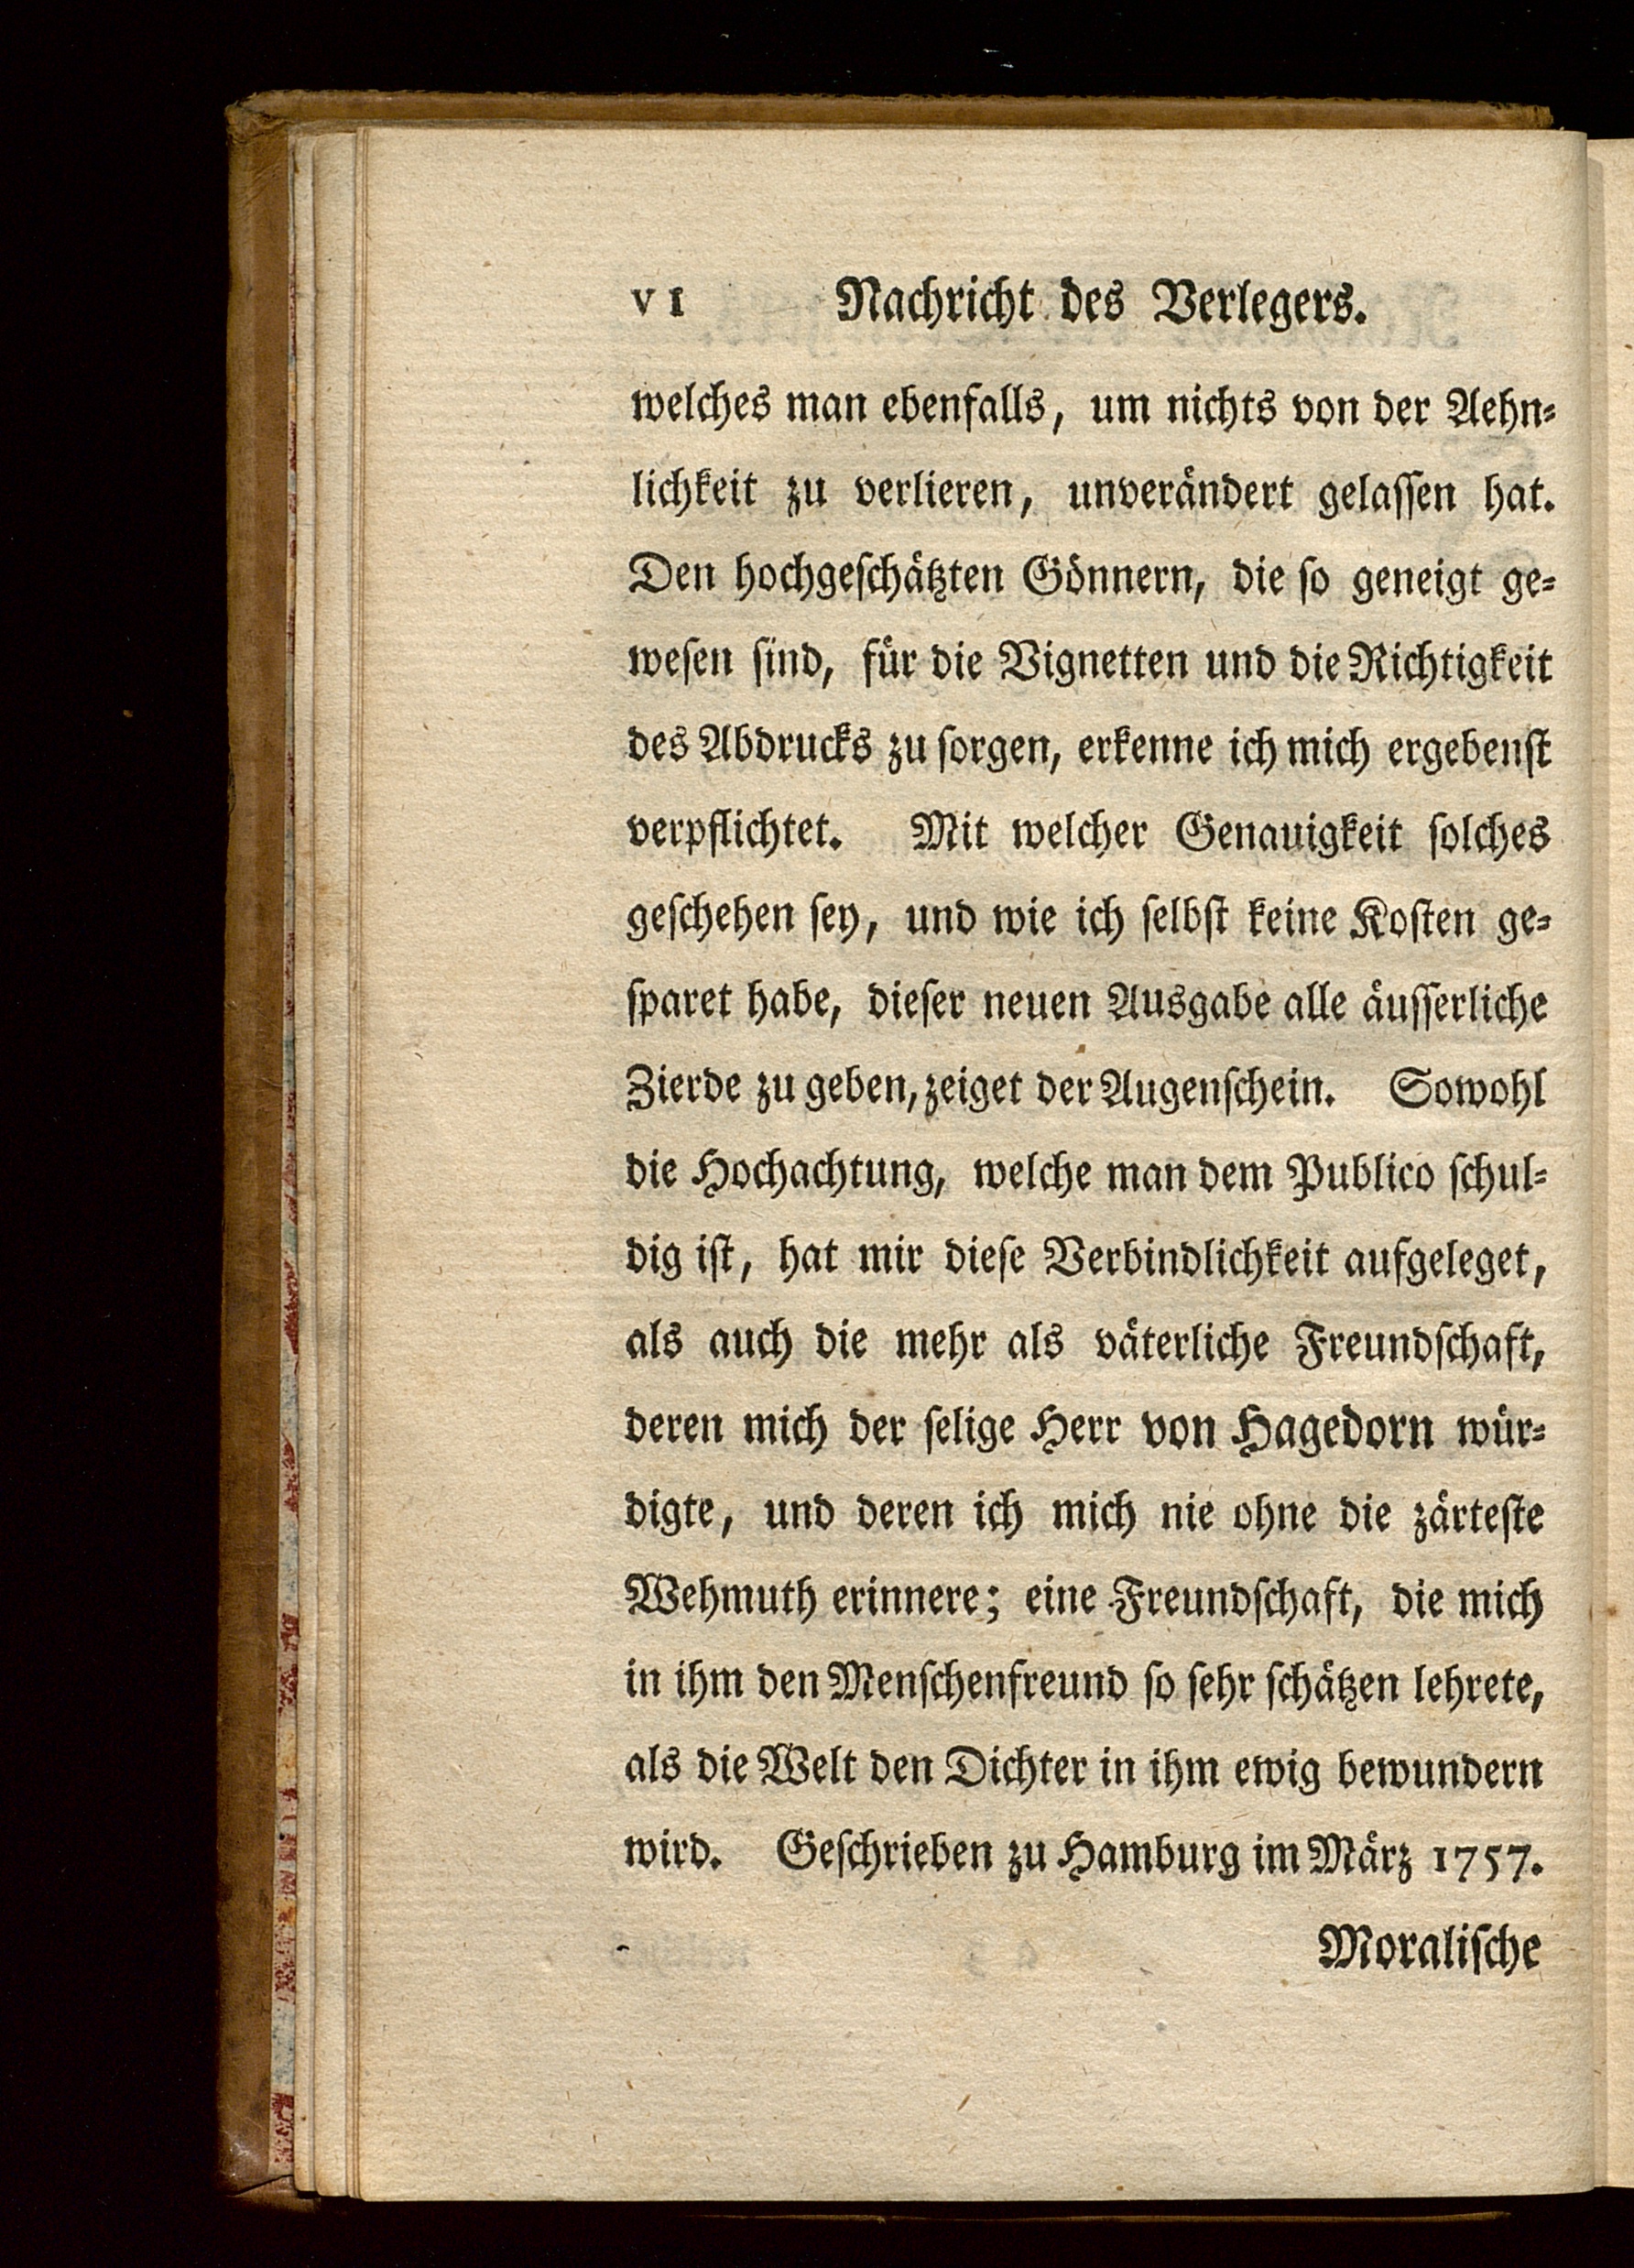 VI Nachricht des Verlegers.
welches man ebenfalls, um nichts von der Aehn⸗
lichkeit zu verlieren, unverändert gelaſſen hat.
Den hochgeſchätzten Gönnern, die ſo geneigt ge⸗
weſen ſind, für die Vignetten und die Richtigkeit
des Abdrucks zu ſorgen, erkenne ich mich ergebenſt
verpflichtet. Mit welcher Genauigkeit ſolches
geſchehen ſey, und wie ich ſelbſt keine Koſten ge⸗
ſparet habe, dieſer neuen Ausgabe alle äuſſerliche
Zierde zu geben, zeiget der Augenſchein. Sowohl
die Hochachtung, welche man dem Publico ſchul⸗
dig iſt, hat mir dieſe Verbindlichkeit aufgeleget,
als auch die mehr als väterliche Freundſchaft,
deren mich der ſelige Herr von Hagedorn wür⸗
digte, und deren ich mich nie ohne die zärteſte
Wehmuth erinnere; eine Freundſchaft, die mich
in ihm den Menſchenfreund ſo ſehr ſchätzen lehrete,
als die Welt den Dichter in ihm ewig bewundern
wird. Geſchrieben zu Hamburg im März 1757.
Moraliſche